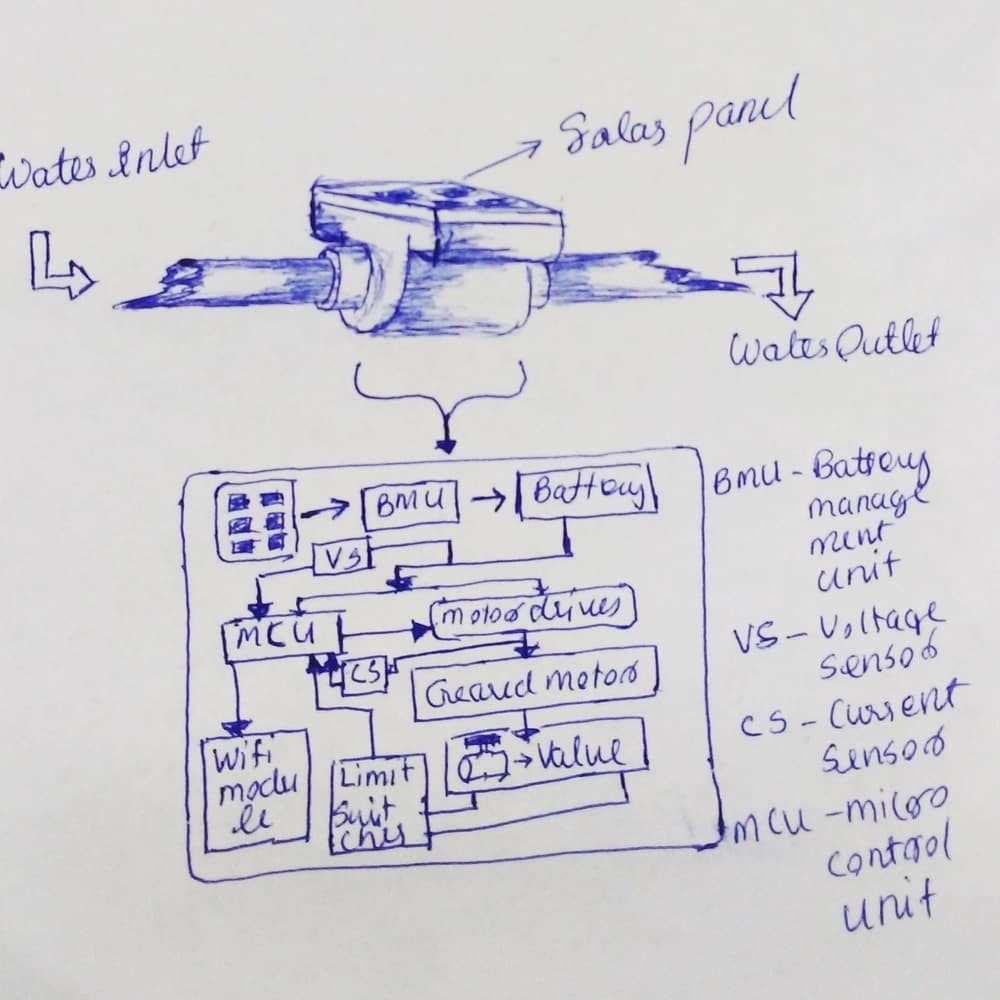 Water Inlet
Solar panel
Water Outlet
BMU
Battery
VS
MCU
Motor driver
CS
Geared motor
Wifi
modu
le
Limit
Swit
ches
Value
BMU - Battery
manage
ment
unit
VS - Voltage
sensor
CS - Current
sensor
MCU - micro
control
unit